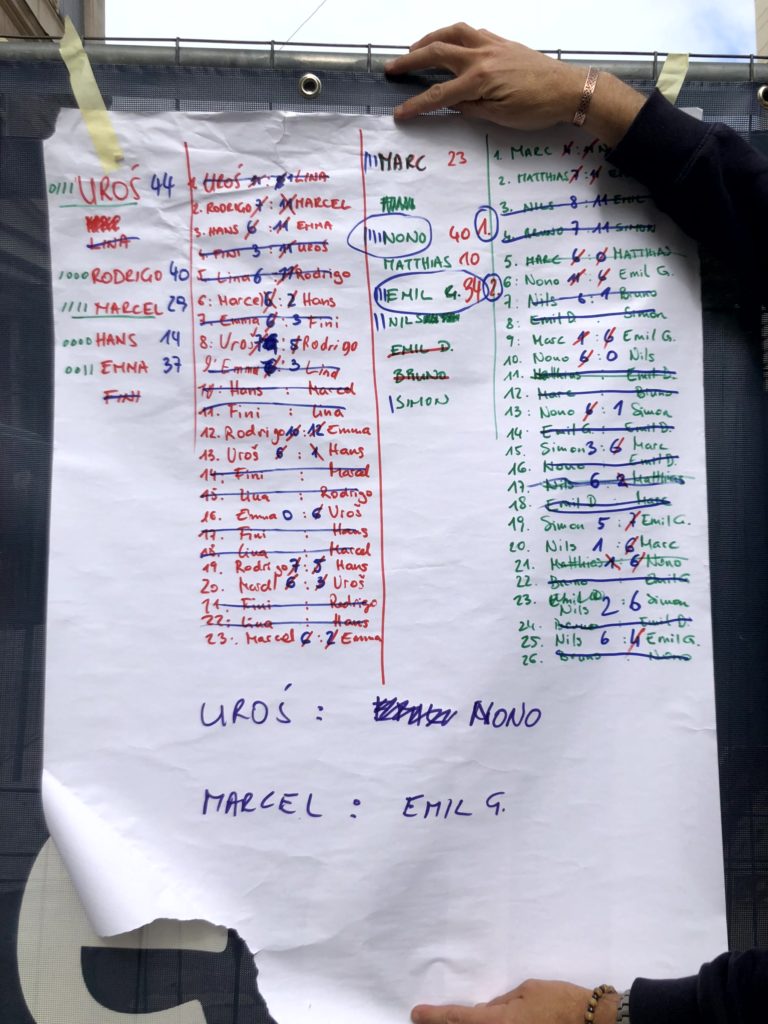 0//// UROŠ 44
LINA
/000 RODRIGO 40
//// MARCEL 29
0000 HANS 14
00// EMNA 37
FINI
1. UROŠ : LINA
2. RODRIGO 7 : 11 MARCEL
3. HANS 6 : 11 EMMA
4. FINI 3 : 11 UROŠ
5. Lina 6 : 11 Rodrigo
6. Marcel 6 : 2 Hans
7. Emma 6 : 3 Fini
8. Uroš : 5 Rodrigo
9. Emma 6 : 3 Lina
10. Hans : Marcel
11. Fini : Lina
12. Rodrigo 10 : 12 Emma
13. Uroš 6 : 1 Hans
14. Fini : Marcel
15. Lina : Rodrigo
16. Emma 0 : 6 Uroš
17. Fini : Hans
18. Lina : Marcel
19. Rodrigo 7 : 5 Hans
20. Marcel 6 : 3 Uroš
21. Fini : Rodrigo
22. Lina : Hans
23. Marcel 6 : 2 Emma
||| MARC 23
|||| NONO 40 1.
MATTHIAS 10
|||| EMIL G. 34 2.
|| NILS
EMIL D.
BRUNO
| SIMON
1. MARC : NONO
2. MATTHIAS 7 :
3. NILS 8 : 11 EMIL
4. BRUNO 7 : 11 SIMON
5. MARC 6 : 0 MATTHIAS
6. Nono : Emil G.
7. Nils 6 : 1 Bruno
8. Emil D. Simon
9. Marc : 6 Emil G.
10. Nono 6 : 0 Nils
11. Matthias : Emil D.
12. Marc : Bruno
13. Nono 6 : 1 Simon
14. Emil G. : Emil D.
15. Simon 3 : 6 Marc
16. Nono : Emil D.
17. Nils 6 : 2 Matthias
18. Emil D : Marc
19. Simon 5 : 7 Emil G.
20. Nils 1 : 6 Marc
21. Matthias 1 : 6 Nono
22. Bruno : Emil G
23. Emil D Nils 2 : 6 Simon
24. Bruno : Emil D.
25. Nils 6 : 4 Emil G.
26. Bruno : Nono
UROŠ : NONO
MARCEL : EMIL G.